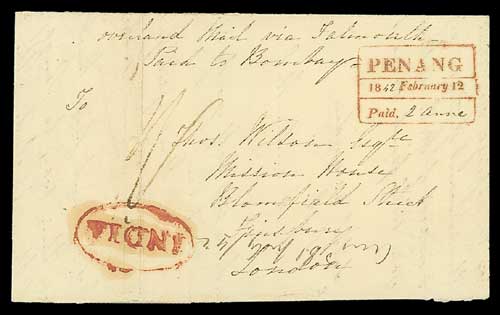 overland Mail via Falmouth
Paid to Bombay
PENANG
1842 February 12
Paid, 2 Anna
To
Thos. Wilson Esqre
Mission House
Blomfield Street
Finsbury
London
INDIA